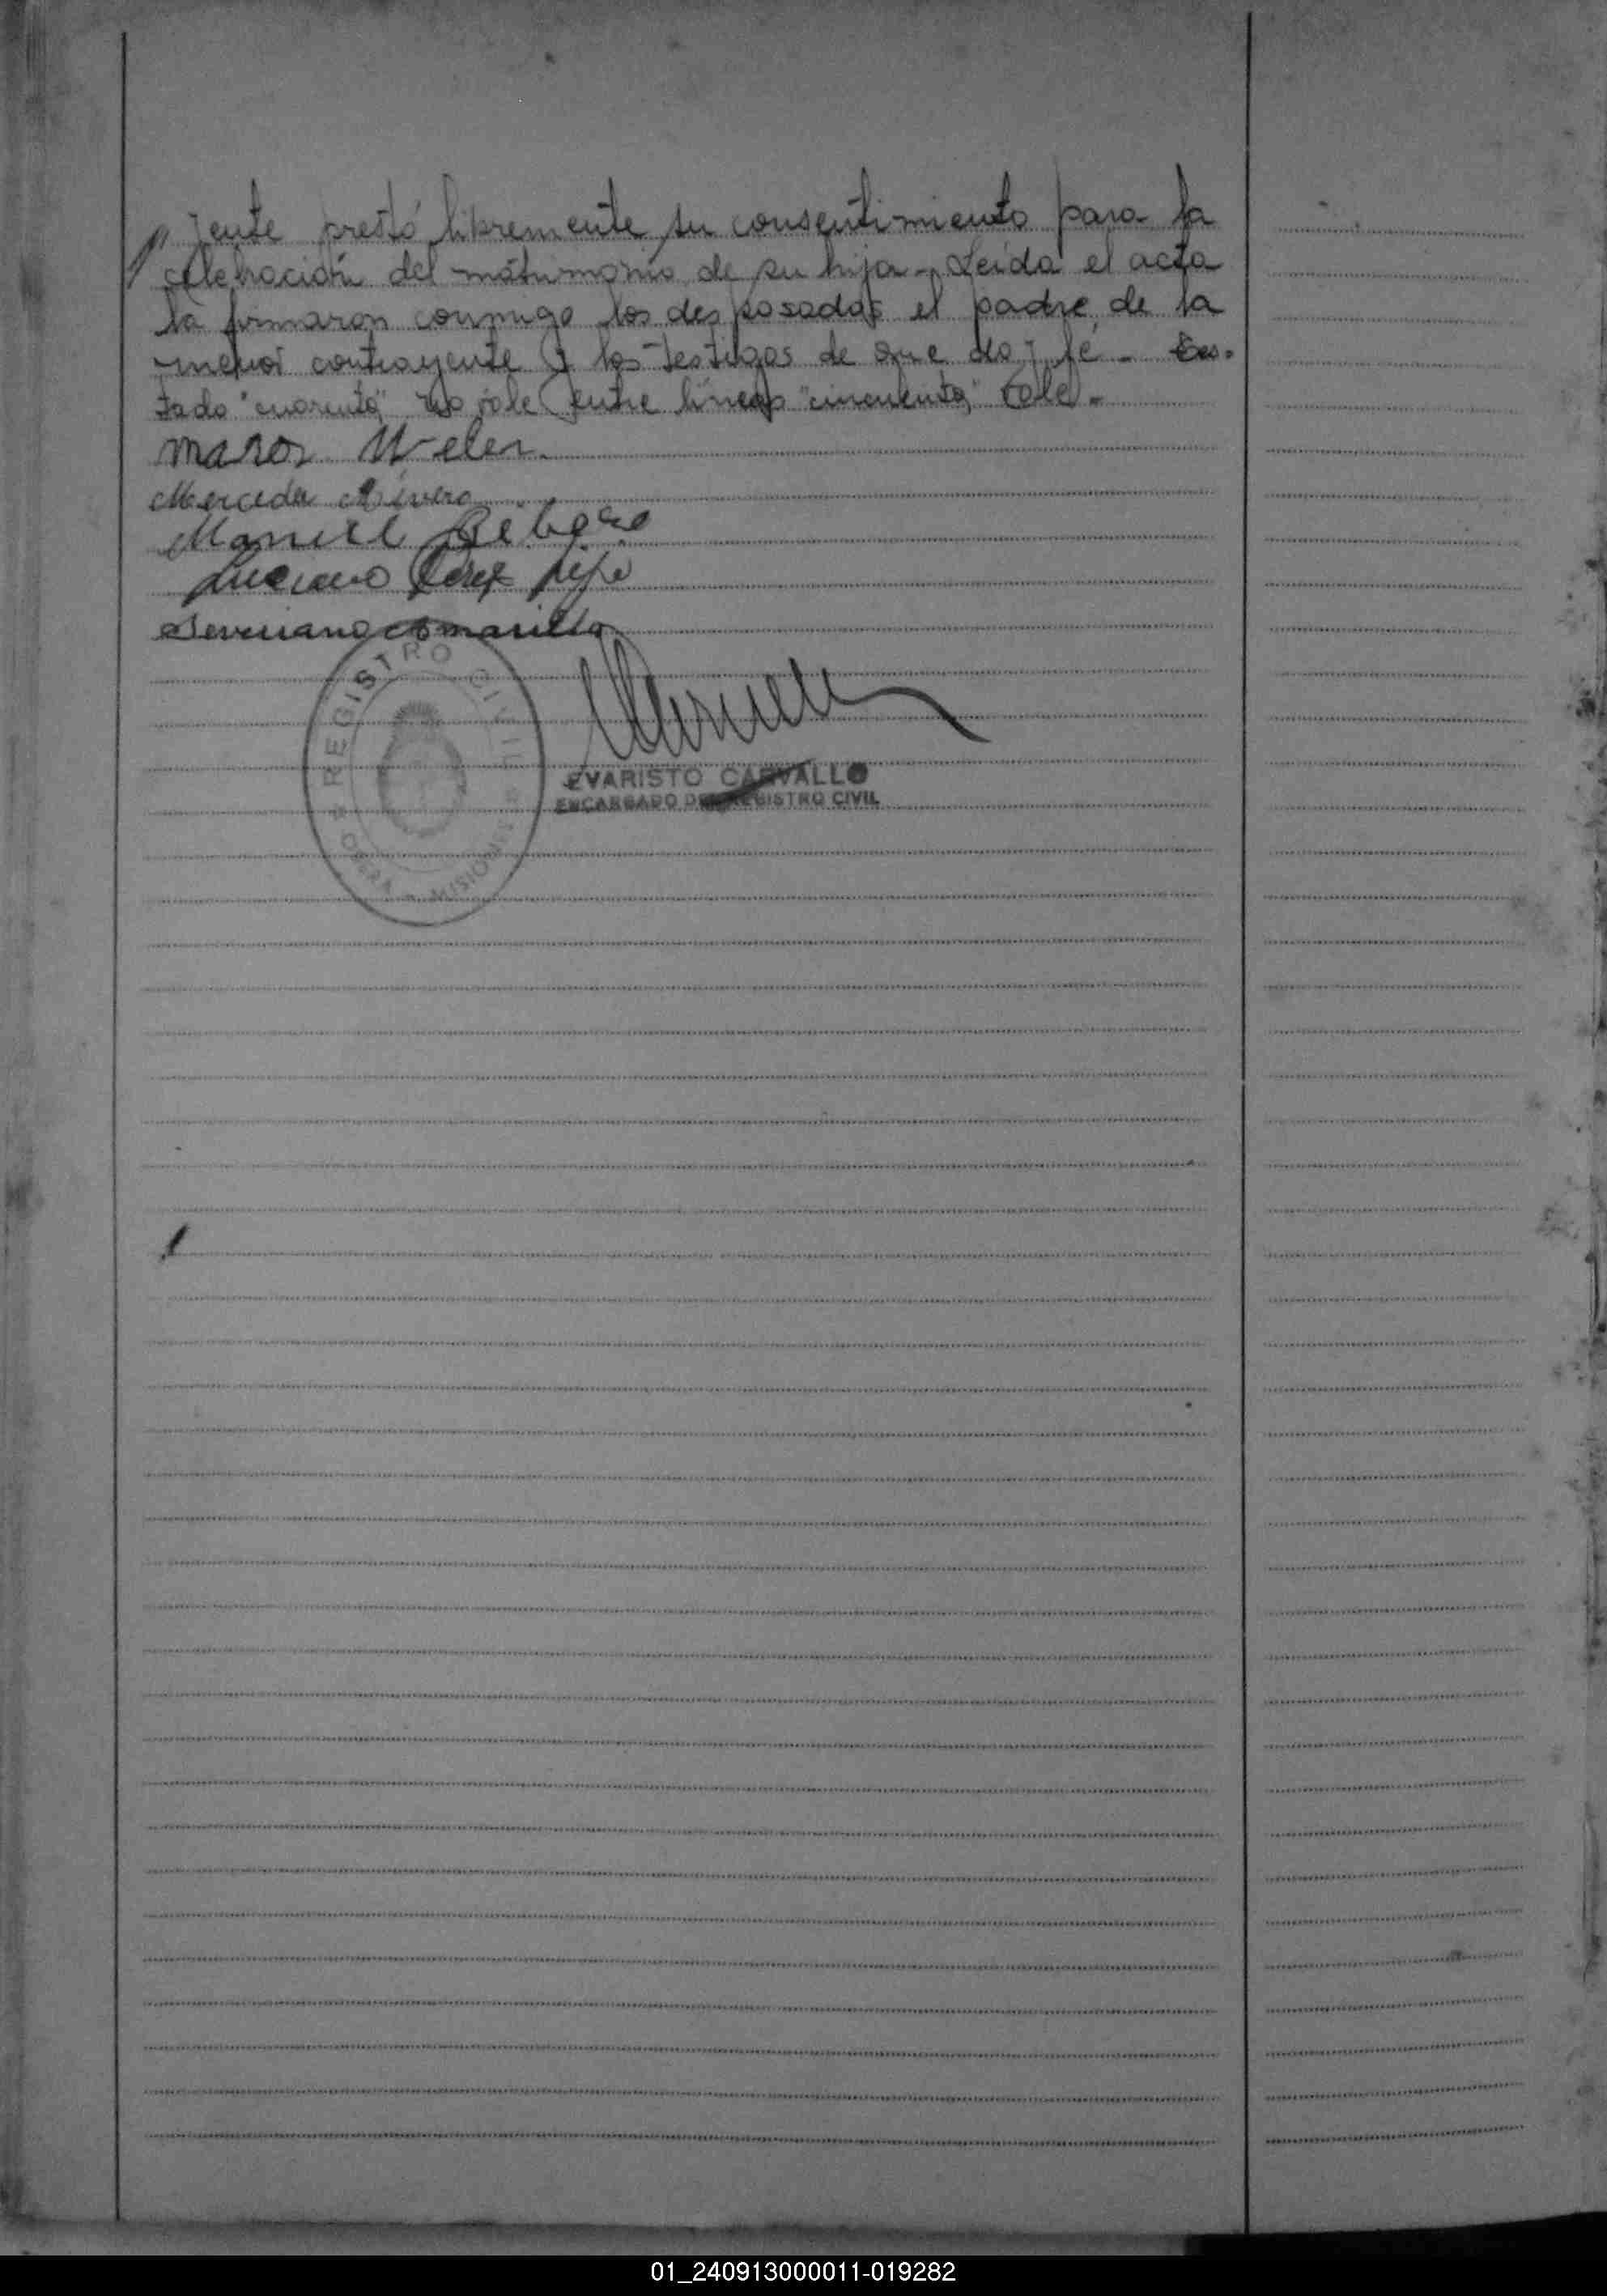 yente prestó libremente su consentimiento para la
celebración del matrimonio de su hija - Leída el acta
la firmaron conmigo los desposados el padre de la
menor contrayente y los testigos de que doy fé - Tes-
tado "cuarenta" no vale entre lineas "cincuenta" vale -
Mercedes Rivero
Manuel
Luciano
Severiano Amarilla
REGISTRO CIVIL
OBERA MISIONES
EVARISTO CARVALLO
ENCARGADO DEL REGISTRO CIVIL
01_240913000011-019282